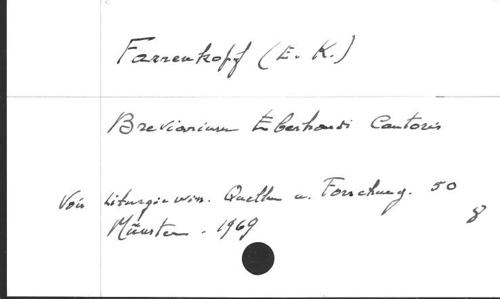 Farrenkopf (E. K.)
Breviarium Eberhardi Cantoris
Voir Liturgiewiss. Quellen u. Forschung. 50
8
Münster. 1969